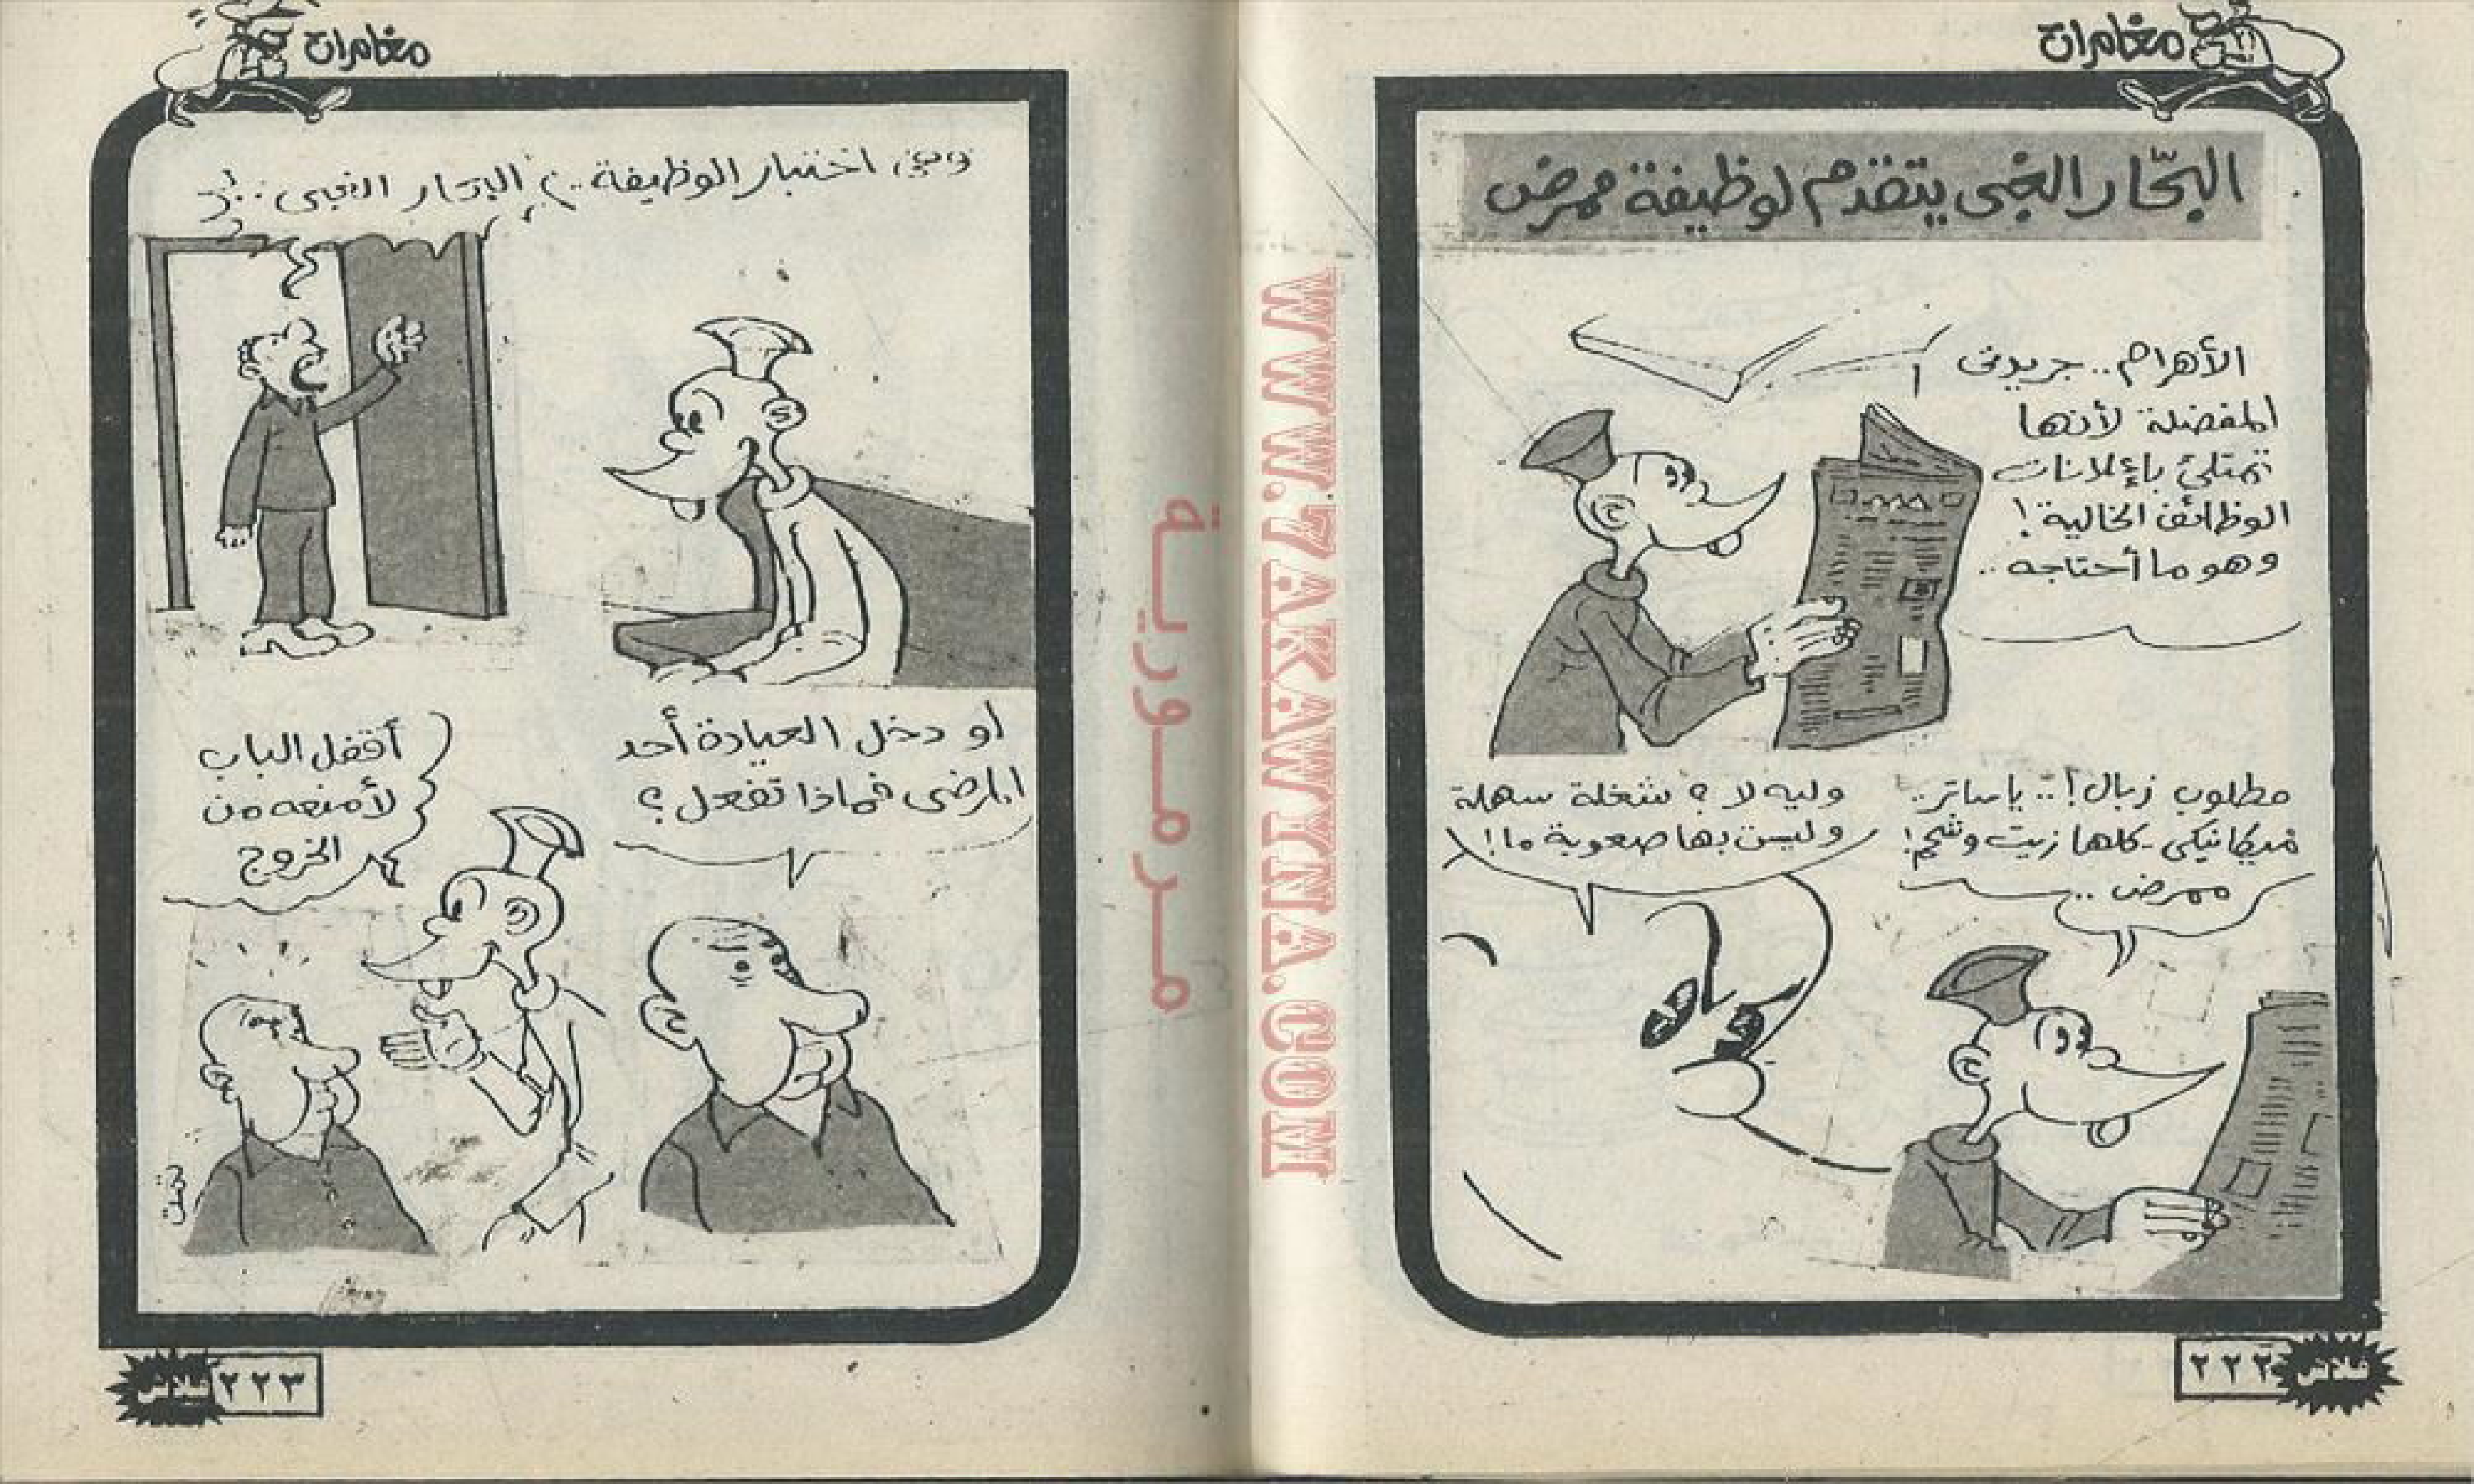 مغامرات
البحّار الغبى يتقدم لوظيفة ممرض
الأهرام.. جريدتى
المفضلة لأنها
تمتلئ بإعلانات
الوظائف الخالية!
وهو ما أحتاجه..
مطلوب زبال!.. ياساتر..
ميكانيكى - كلها زيت وشحم!
ممرض..
وليه لا؟ شغلة سهلة
وليس بها صعوبة ما!
فلاش
٢٢٢
مغامرات
وفى اختبار الوظيفة..
البحار الغبى..
لو دخل العيادة أحد
المرضى فماذا تفعل؟
أقفل الباب
لأمنعه من
الخروج
تمت
٢٢٣
فلاش
WWW.7AKAWINA.COM
مرمورية